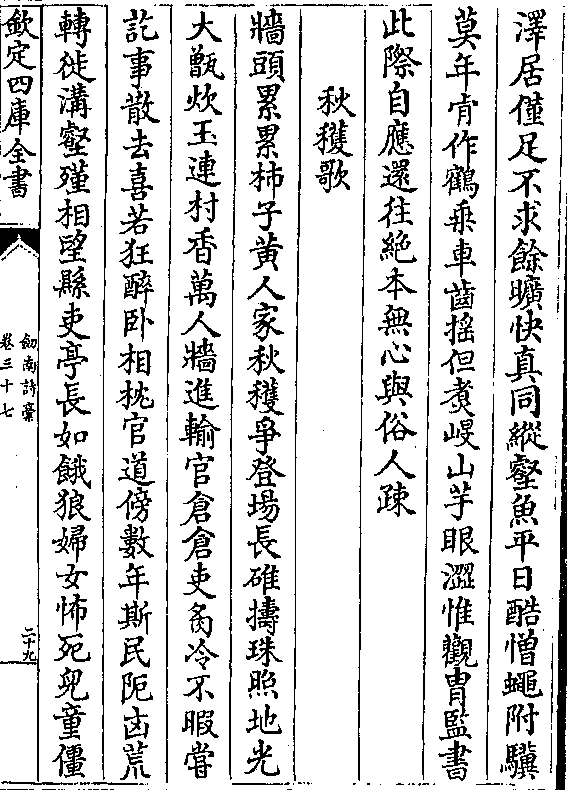 澤居僅足不求餘曠快真同縱壑魚平日酷憎蠅附驥
莫年肯作鶴乗車齒摇但煑嵕山芋眼澀惟觀胄監書
此際自應還往絶本無心與俗人疎
秋穫歌
牆頭累累柿子黄人家秋穫爭登場長碓擣珠照地光
大甑炊玉連村香萬人牆進輸官倉倉吏炙冷不暇嘗
訖事散去喜若狂醉卧相枕官道傍數年斯民阨凶荒
轉徙溝壑殣相望縣吏亭長如餓狼婦女怖死兒童僵
欽定四庫全書
劒南詩稾
卷三十七
二十九